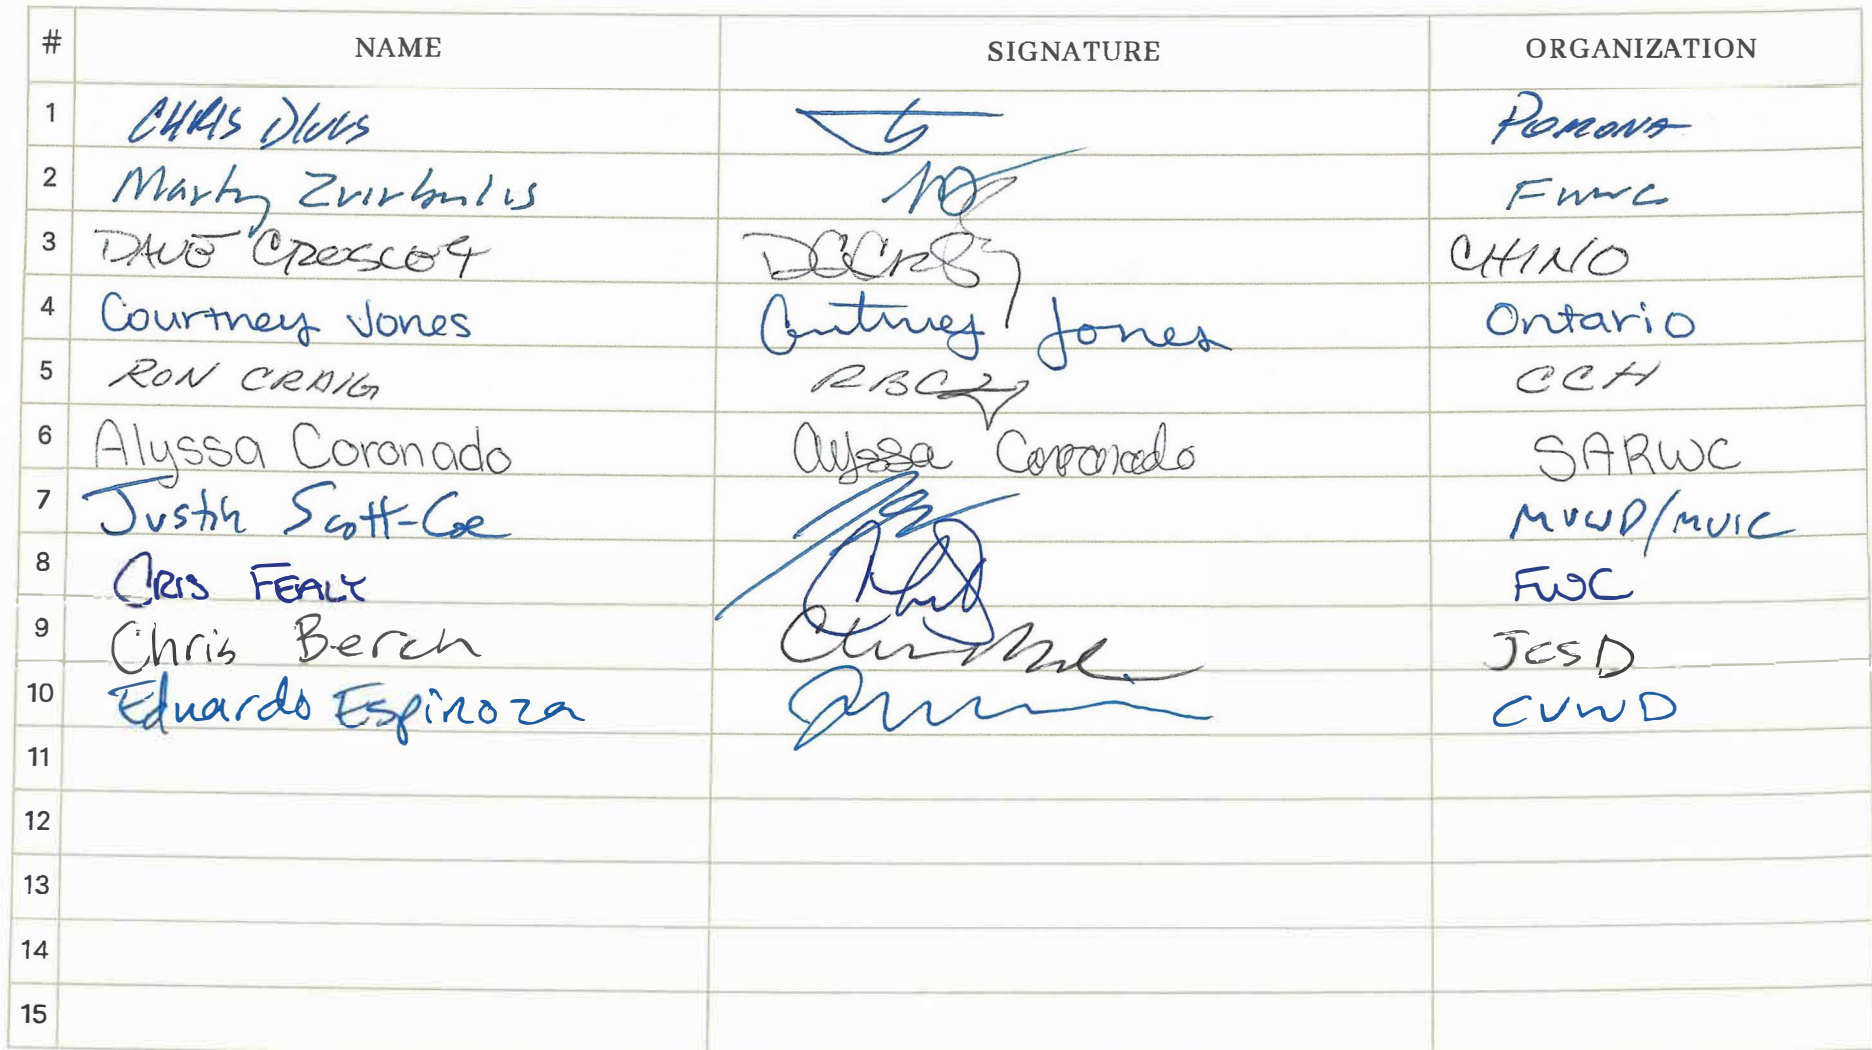 # NAME SIGNATURE ORGANIZATION
1 CHRIS DIGGS POMONA
2 Marty Zvirbulis FWWC
3 DAVE CROSLEY CHINO
4 Courtney Jones Courtney Jones Ontario
5 RON CRAIG CCH
6 Alyssa Coronado Alyssa Coronado SARWC
7 Justin Scott-Coe MVWD/MVIC
8 CRIS FEALY FWC
9 Chris Berch JCSD
10 Eduardo Espinoza CVWD
11
12
13
14
15